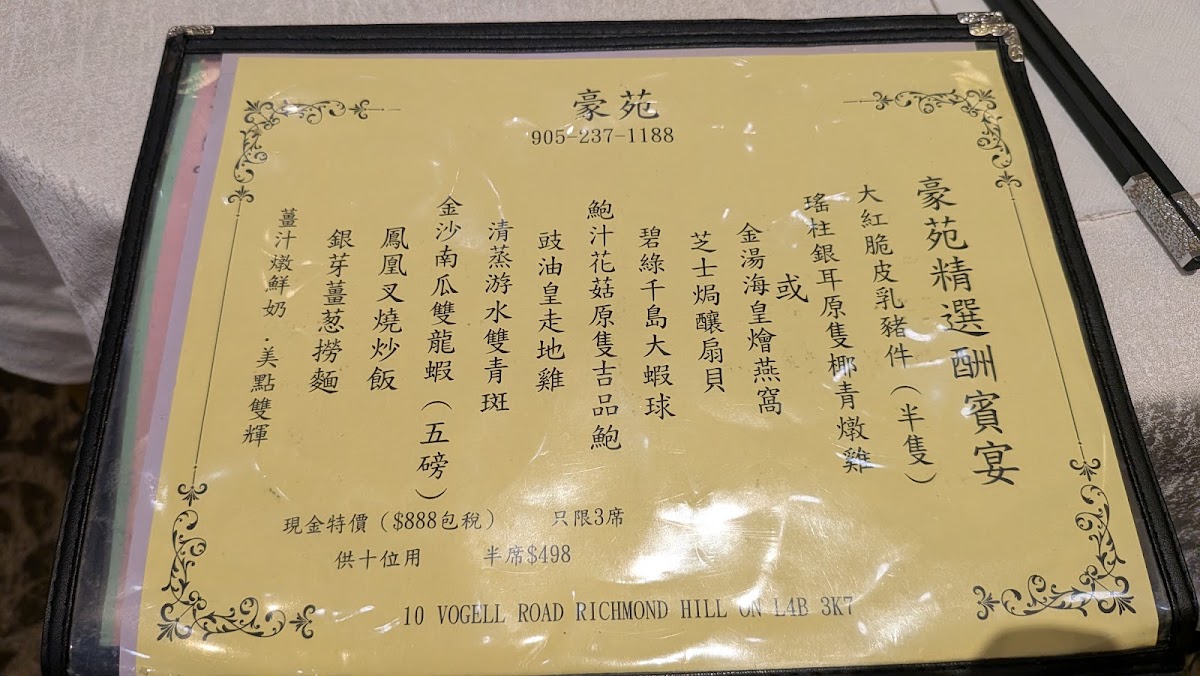 豪苑
905-237-1188
豪苑精選酬賓宴
大紅脆皮乳豬件（半隻）
瑤柱銀耳原隻椰青燉雞
或
金湯海皇燴燕窩
芝士焗釀扇貝
碧綠千島大蝦球
鮑汁花菇原隻吉品鮑
豉油皇走地雞
清蒸游水雙青斑
金沙南瓜雙龍蝦（五磅）
鳳凰叉燒炒飯
銀芽薑葱撈麵
薑汁燉鮮奶．美點雙輝
現金特價（$888包稅） 只限3席
供十位用 半席$498
10 VOGELL ROAD RICHMOND HILL ON L4B 3K7